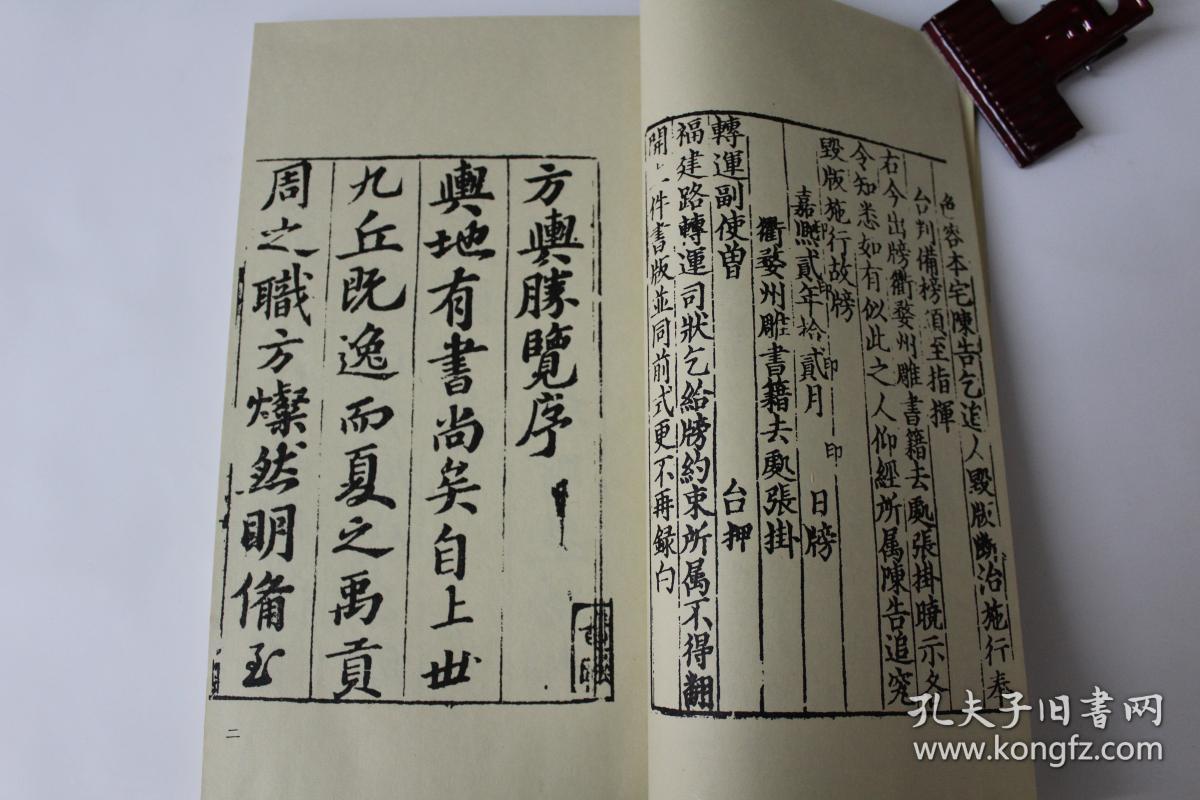 色容本宅陳告乞追人毀版斷治施行奉
台判備榜須至指揮
右今出牓衢婺州雕書籍去䖏張掛曉示各
令知悉如有似此之人仰經所属陳告追究
毀版施行故牓
嘉熈貳年拾貳月 印 日牓
衢婺州雕書籍去䖏張掛
轉運副使曽 台押
福建路轉運司狀乞給牓約束所属不得翻
開上件書版並同前式更不再録白
方輿勝覽序
輿地有書尚矣自上世
九丘既逸而夏之禹貢
周之職方燦然明備至
二
孔夫子旧書网
www.kongfz.com